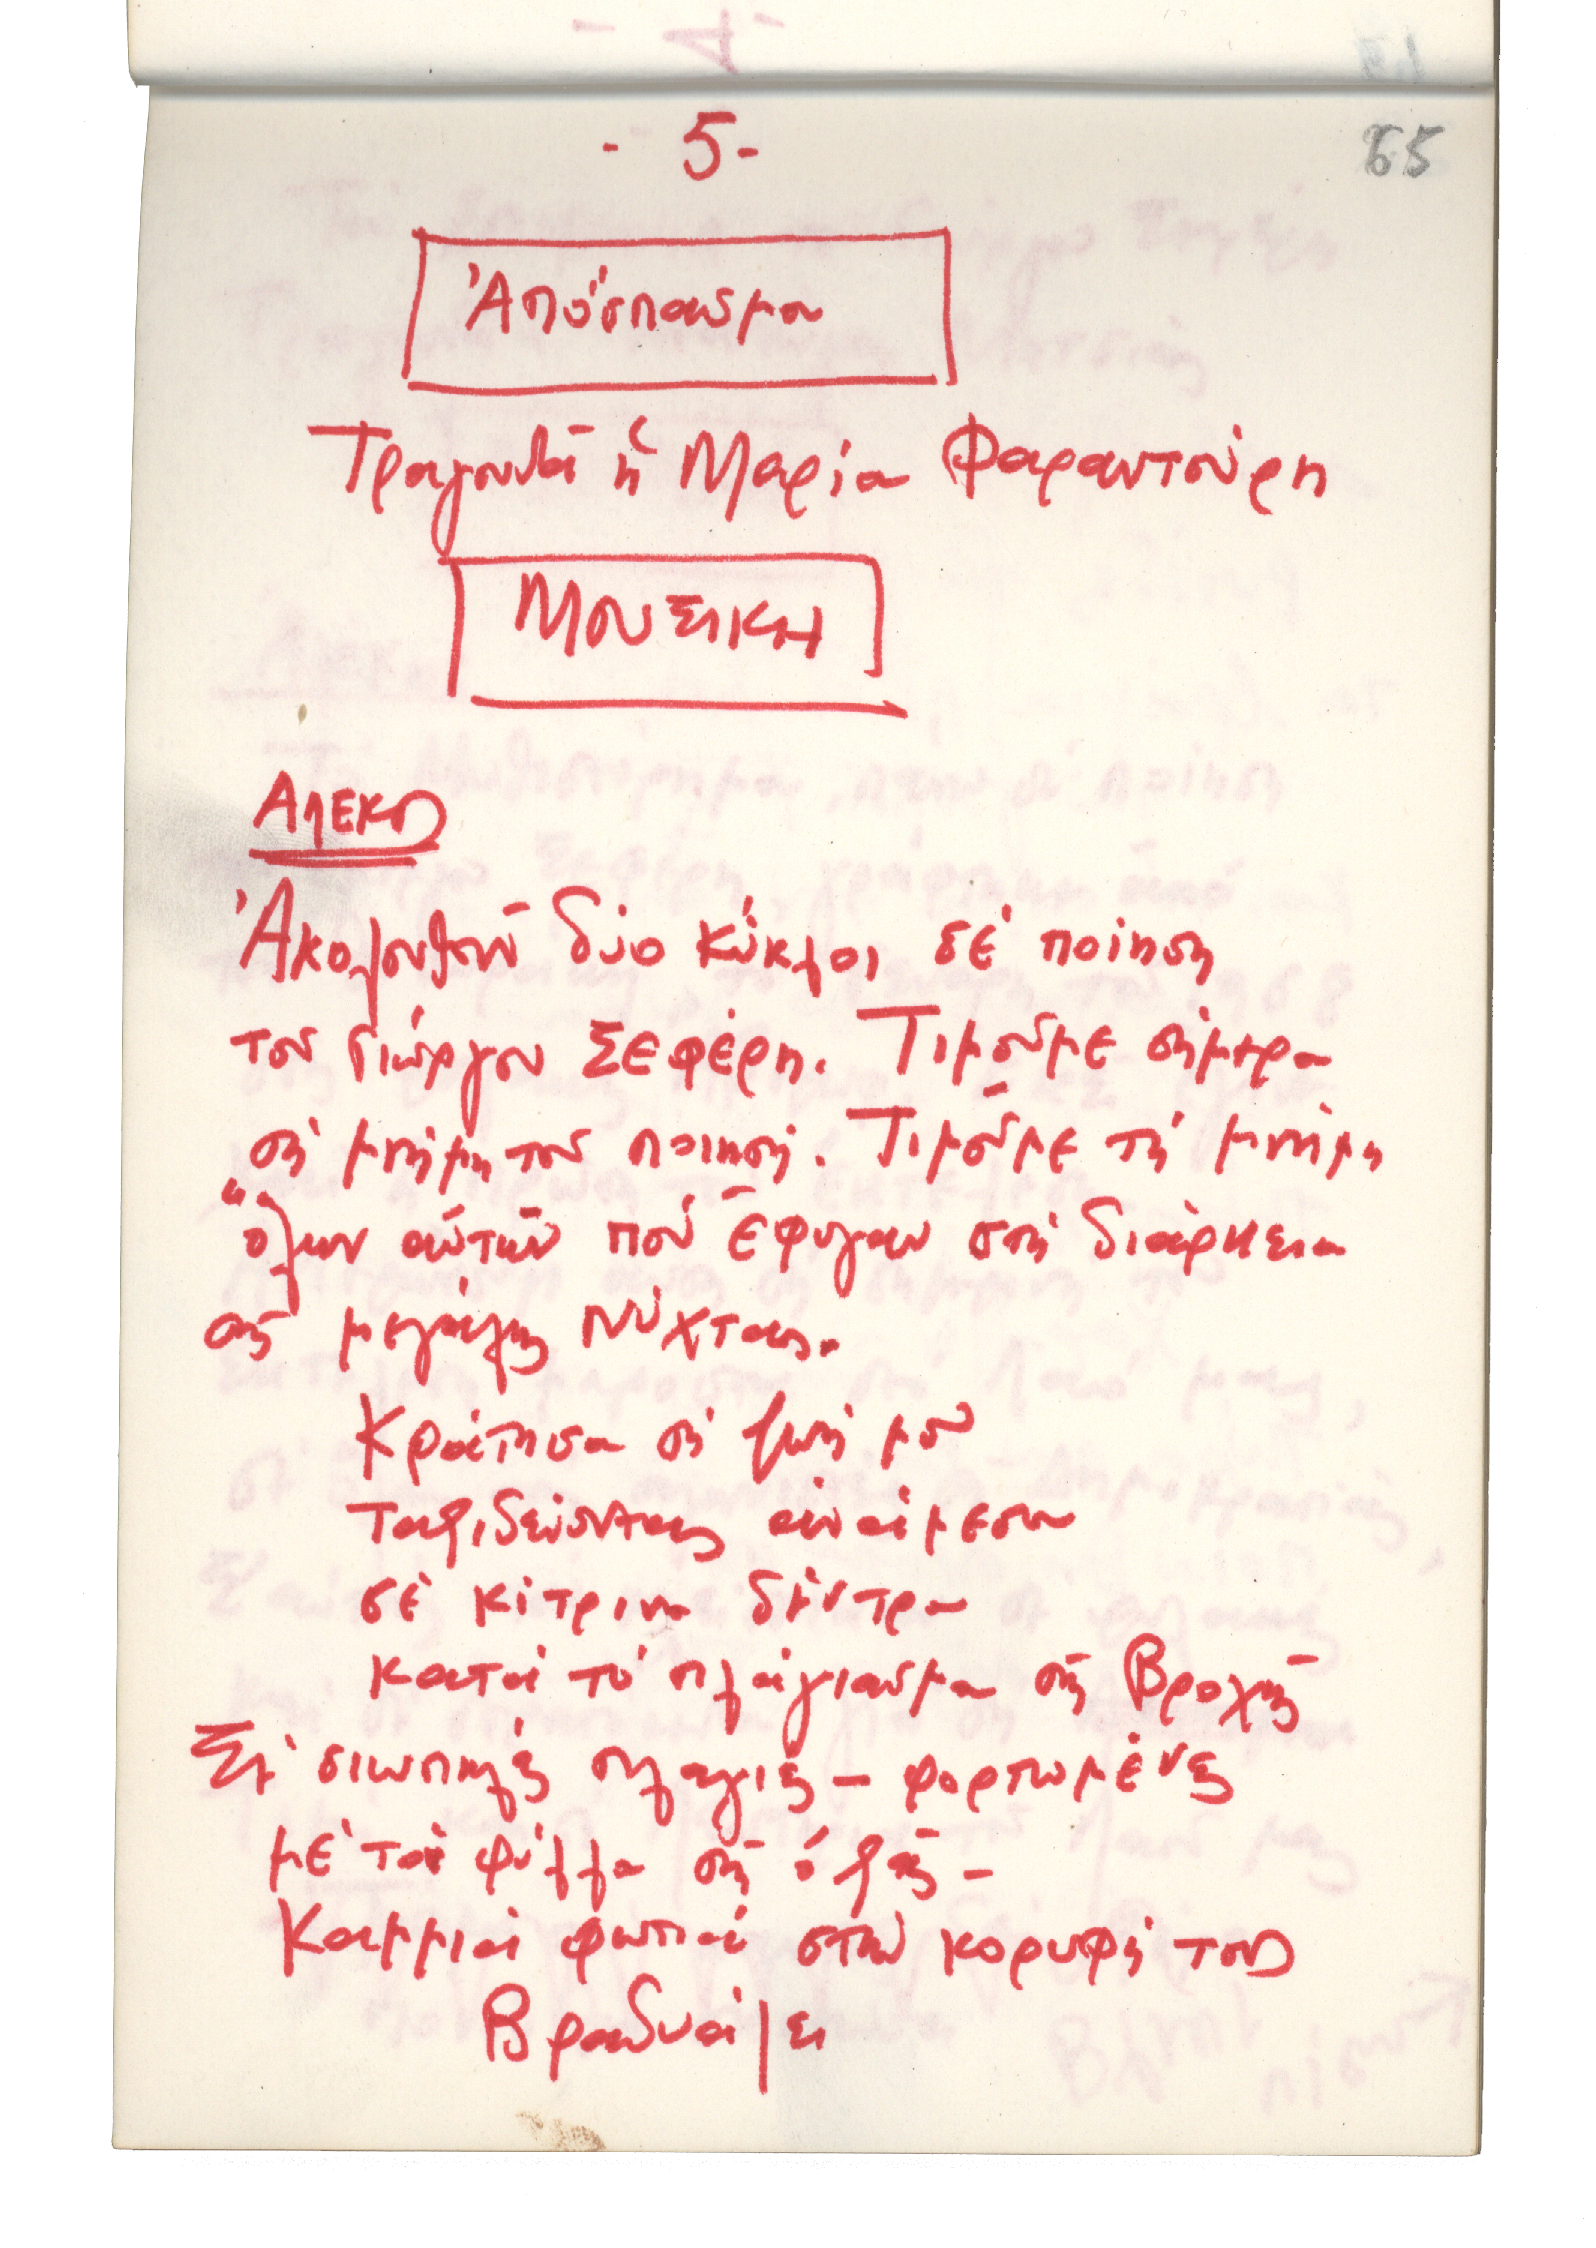 - 5 -
65
Ἀπόσπασμα
Τραγουδᾶ ἡ Μαρία Φαραντούρη
ΜΟΥΣΙΚΗ
ΑΛΕΚΟΣ
Ἀκολουθοῦν δύο κύκλοι σέ ποίηση
τοῦ Γιώργου Σεφέρη. Τιμοῦμε σήμερα
τή μνήμη τοῦ ποιητή. Τιμοῦμε τή μνήμη
ὅλων αὐτῶν πού ἔφυγαν στή διάρκεια
τῆς μεγάλης Νύχτας.
Κράτησα τή ζωή μου
ταξιδεύοντας ἀνάμεσα
σέ κίτρινα δέντρα
κατά τό πλάγιασμα τῆς Βροχῆς
Σέ σιωπηλές πλαγιές – φορτωμένες
μέ τά φύλλα τῆς ὀξιᾶς –
Καμμιά φωτιά στήν κορυφή τους
Βραδυάζει